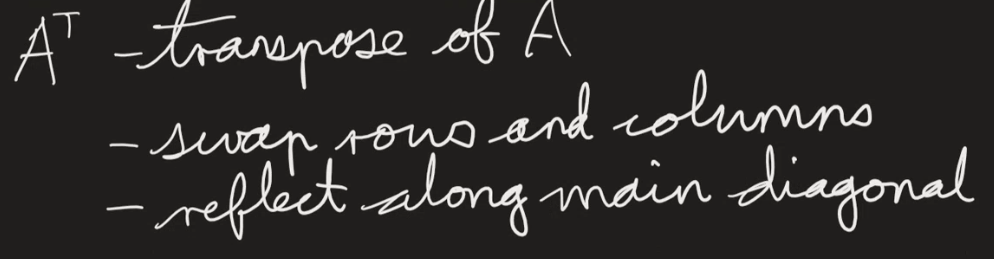 Aᵀ - transpose of A
- swap rows and columns
- reflect along main diagonal